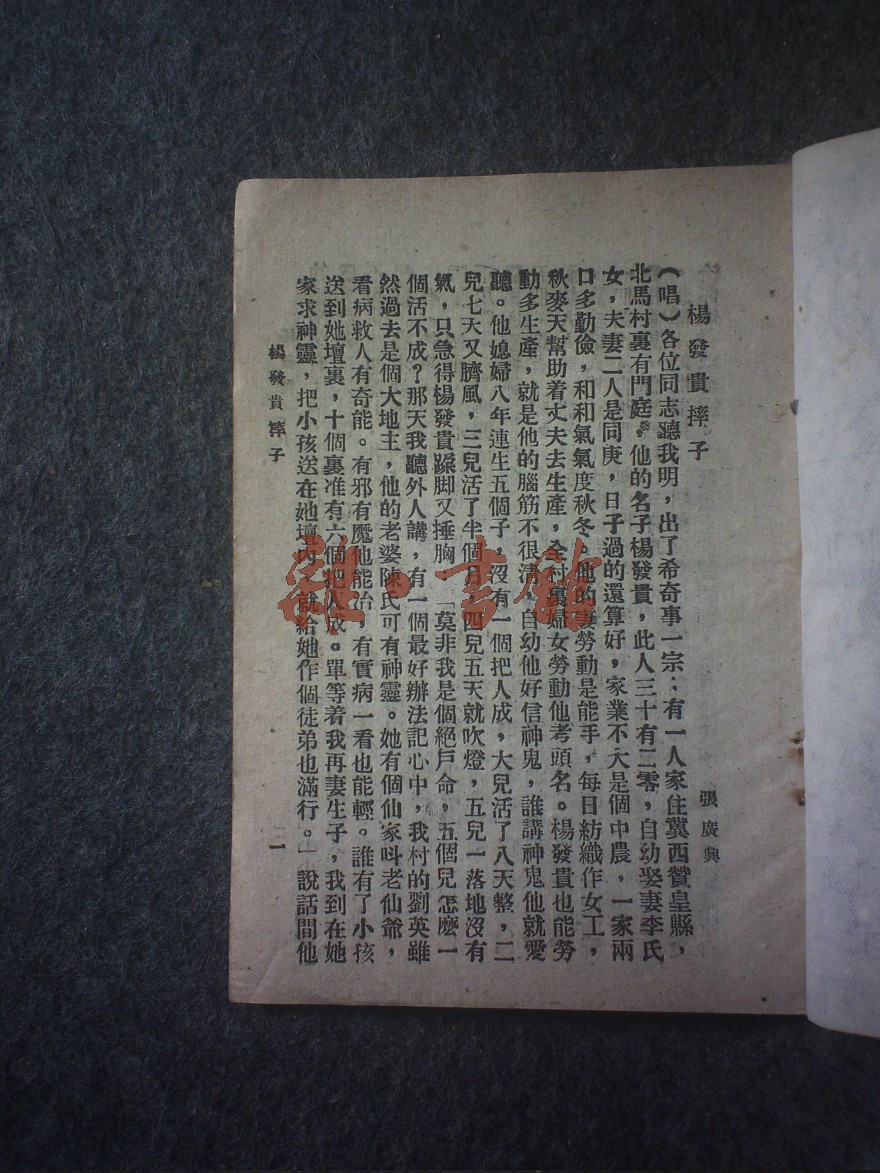 楊發貴摔子
張廣興
(唱)各位同志聽我明,出了希奇事一宗:有一人家住冀西贊皇縣,
北馬村裏有門庭。他的名子楊發貴,此人三十有二零,自幼娶妻李氏
女,夫妻二人是同庚,日子過的還算好,家業不大是個中農,一家兩
口多勤儉,和和氣氣度秋冬,他的妻勞動是能手,每日紡織作女工,
秋麥天幫助着丈夫去生產,全村裏婦女勞動他考頭名。楊發貴也能勞
動多生產,就是他的腦筋不很清,自幼他好信神鬼,誰講神鬼他就愛
聽。他媳婦八年連生五個子,沒有一個把人成,大兒活了八天整,二
兒七天又臍風,三兒活了半個月,四兒五天就吹燈,五兒一落地沒有
氣,只急得楊發貴跺脚又捶胸。「莫非我是個絕戶命,五個兒怎麼一
個活不成?那天我聽外人講,有一個最好辦法記心中,我村的劉英雖
然過去是個大地主,他的老婆陳氏可有神靈。她有個仙家叫老仙爺,
看病救人有奇能。有邪有魔他能治,有實病一看也能輕。誰有了小孩
送到她壇裏,十個裏准有六個把人成。單等着我再妻生子,我到在她
家求神靈,把小孩送在她壇內,就給她作個徒弟也滿行。」說話間他
楊發貴摔子
一
雜·書館